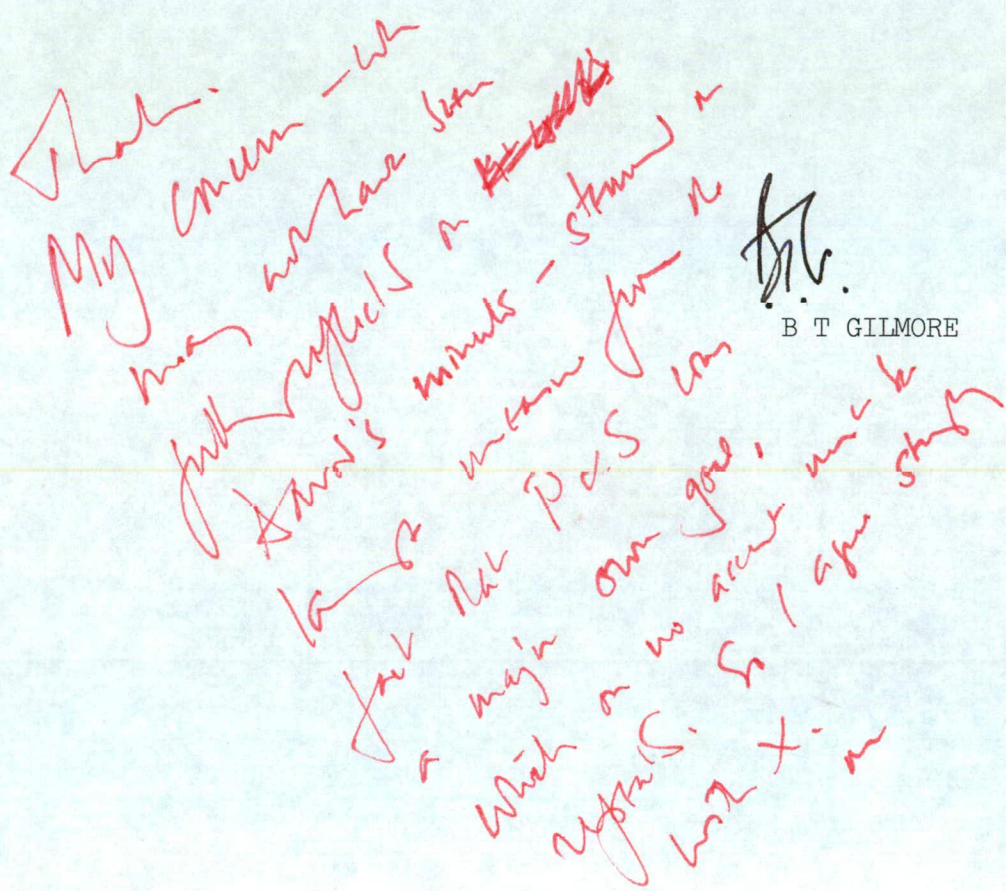 Thanks.
My concern - wh
may not have been
fully reflected in
David's minute - stemmed in
large measure from the
fact that P&S was
a major own goal,
which on no account must be
repeated. So I agree strongly
with X.
B T GILMORE